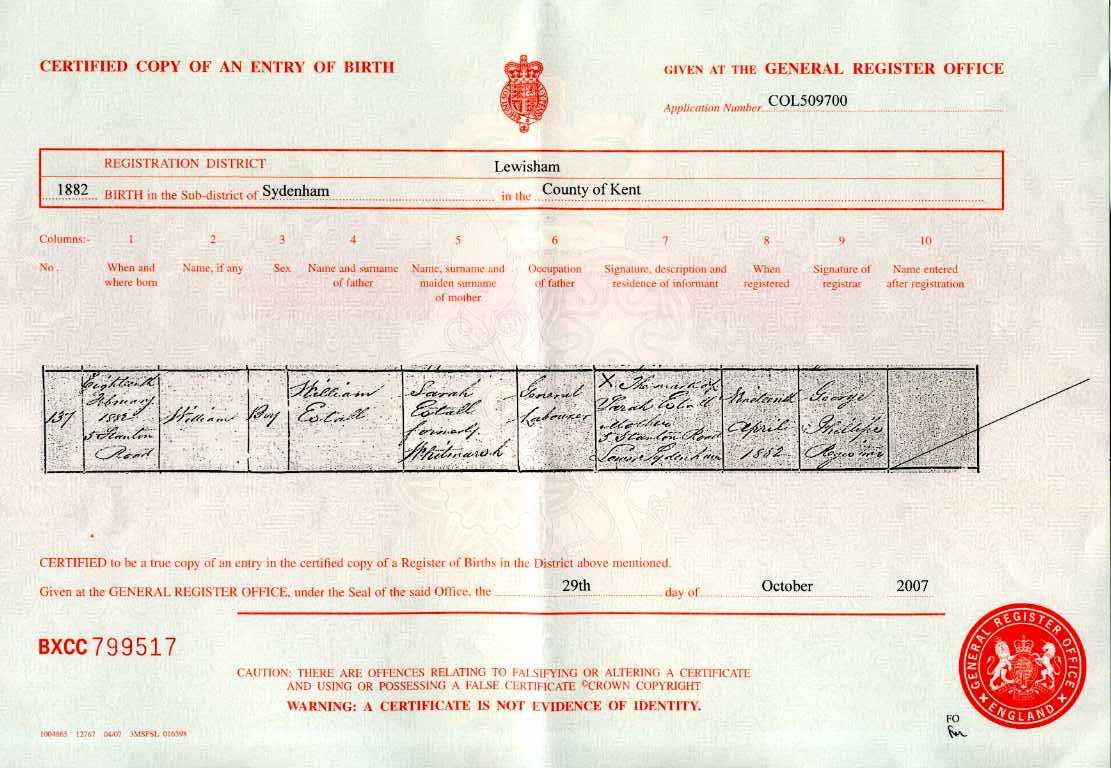 CERTIFIED COPY OF AN ENTRY OF BIRTH
GIVEN AT THE GENERAL REGISTER OFFICE
Application Number COL509700
REGISTRATION DISTRICT Lewisham
1882 BIRTH in the Sub-district of Sydenham in the County of Kent
Columns:- 1 2 3 4 5 6 7 8 9 10
No. When and where born Name, if any Sex Name and surname of father Name, surname and maiden surname of mother Occupation of father Signature, description and residence of informant When registered Signature of registrar Name entered after registration
137
Eighteenth
February
1882
5 Stanton
Road
William
Boy
William
Estall
Sarah
Estall
formerly
Whitmarsh
General
Labourer
X The mark of
Sarah Estall
Mother
5 Stanton Road
Lower Sydenham
April
1882
George
Phillips
CERTIFIED to be a true copy of an entry in the certified copy of a Register of Births in the District above mentioned.
Given at the GENERAL REGISTER OFFICE, under the Seal of the said Office, the 29th day of October 2007
BXCC 799517
CAUTION: THERE ARE OFFENCES RELATING TO FALSIFYING OR ALTERING A CERTIFICATE
AND USING OR POSSESSING A FALSE CERTIFICATE ©CROWN COPYRIGHT
WARNING: A CERTIFICATE IS NOT EVIDENCE OF IDENTITY.
GENERAL REGISTER OFFICE
ENGLAND
FO
1004865 12767 04/07 3MSPSL 016598